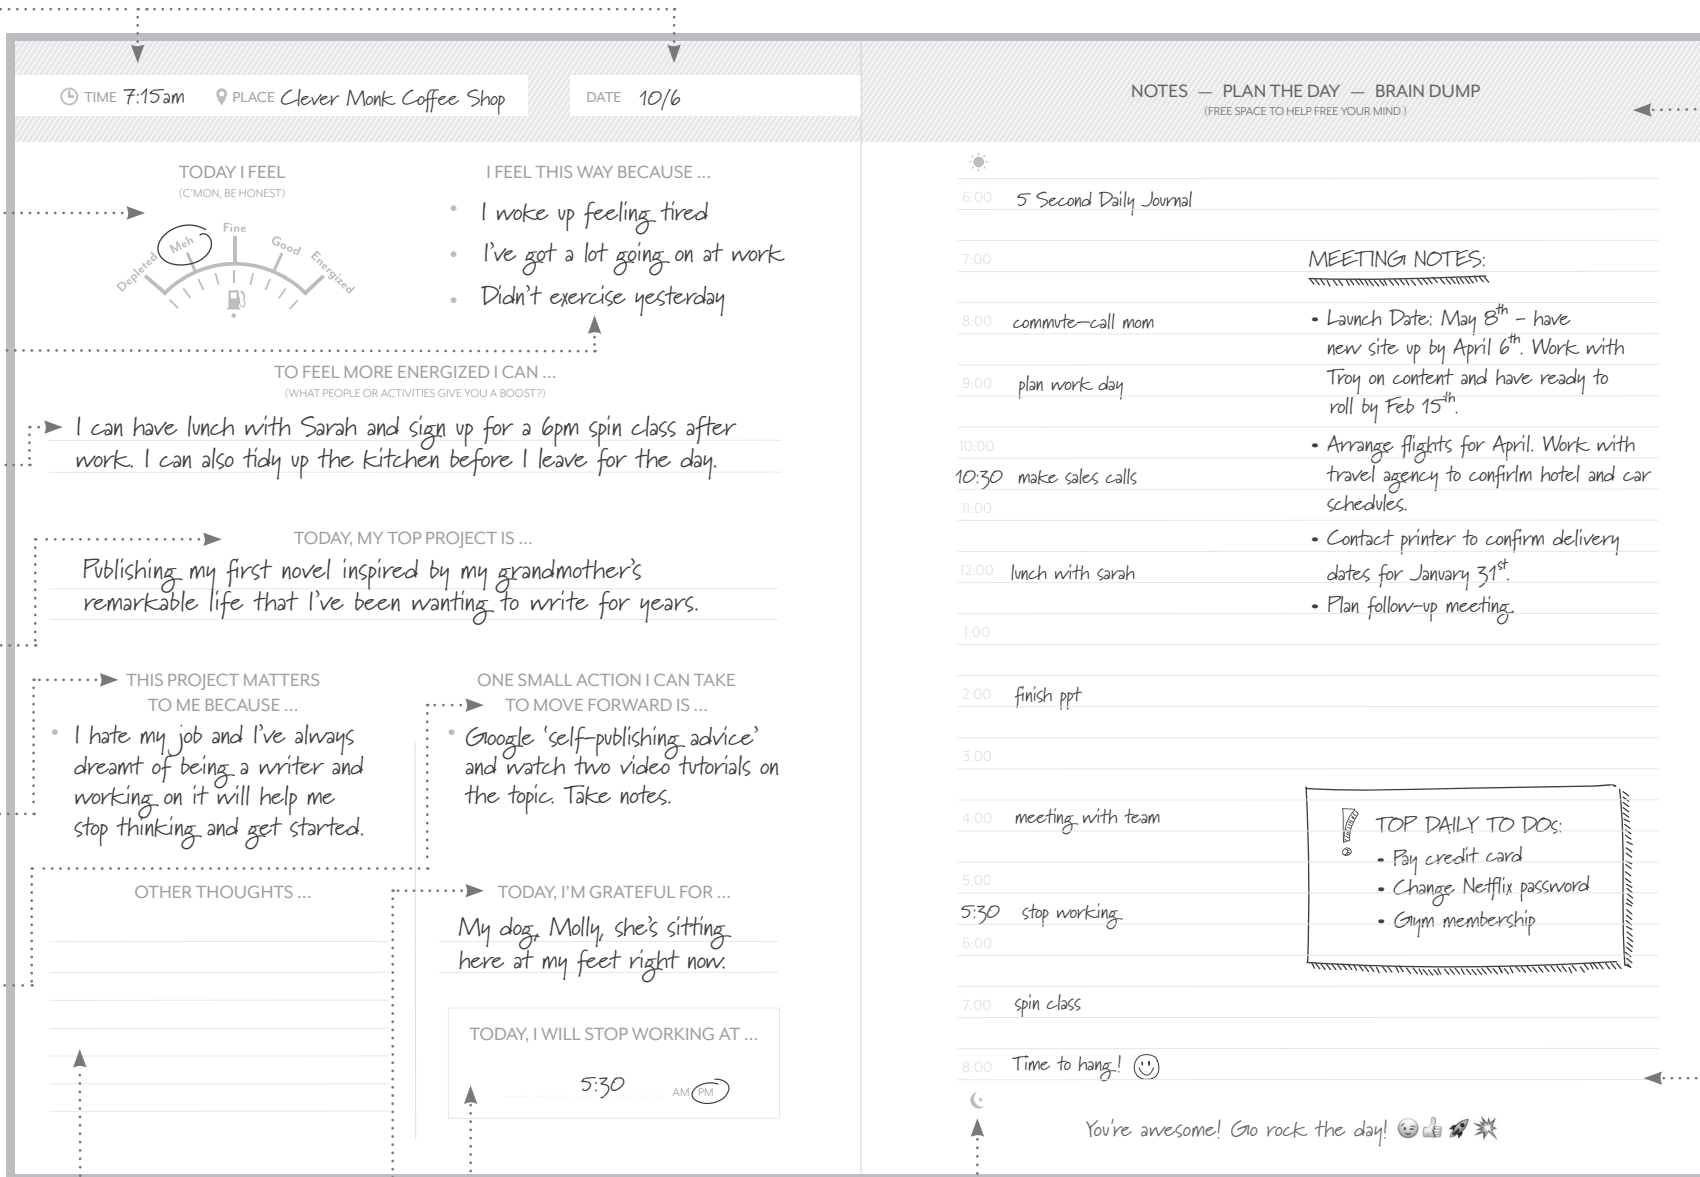 TIME 7:15am PLACE Clever Monk Coffee Shop DATE 10/6
TODAY I FEEL
(C'MON, BE HONEST)
Depleted Meh Fine Good Energized
I FEEL THIS WAY BECAUSE ...
• I woke up feeling tired
• I've got a lot going on at work
• Didn't exercise yesterday
TO FEEL MORE ENERGIZED I CAN ...
(WHAT PEOPLE OR ACTIVITIES GIVE YOU A BOOST?)
I can have lunch with Sarah and sign up for a 6pm spin class after
work. I can also tidy up the kitchen before I leave for the day.
TODAY, MY TOP PROJECT IS ...
Publishing my first novel inspired by my grandmother's
remarkable life that I've been wanting to write for years.
THIS PROJECT MATTERS
TO ME BECAUSE ...
• I hate my job and I've always
dreamt of being a writer and
working on it will help me
stop thinking and get started.
ONE SMALL ACTION I CAN TAKE
TO MOVE FORWARD IS ...
• Google 'self-publishing advice'
and watch two video tutorials on
the topic. Take notes.
OTHER THOUGHTS ...
TODAY, I'M GRATEFUL FOR ...
My dog, Molly, she's sitting
here at my feet right now.
TODAY, I WILL STOP WORKING AT ...
5:30 AM PM
NOTES — PLAN THE DAY — BRAIN DUMP
(FREE SPACE TO HELP FREE YOUR MIND )
6:00 5 Second Daily Journal
7:00
8:00 commute-call mom
9:00 plan work day
10:00
10:30 make sales calls
11:00
12:00 lunch with sarah
1:00
2:00 finish ppt
3:00
4:00 meeting with team
5:00
5:30 stop working
6:00
7:00 spin class
8:00 Time to hang!
MEETING NOTES:
• Launch Date: May 8th - have
new site up by April 6th. Work with
Troy on content and have ready to
roll by Feb 15th.
• Arrange flights for April. Work with
travel agency to confirlm hotel and car
schedules.
• Contact printer to confirm delivery
dates for January 31st.
• Plan follow-up meeting.
! TOP DAILY TO DOs:
• Pay credit card
• Change Netflix password
• Gym membership
You're awesome! Go rock the day! 😉👍🚀💥